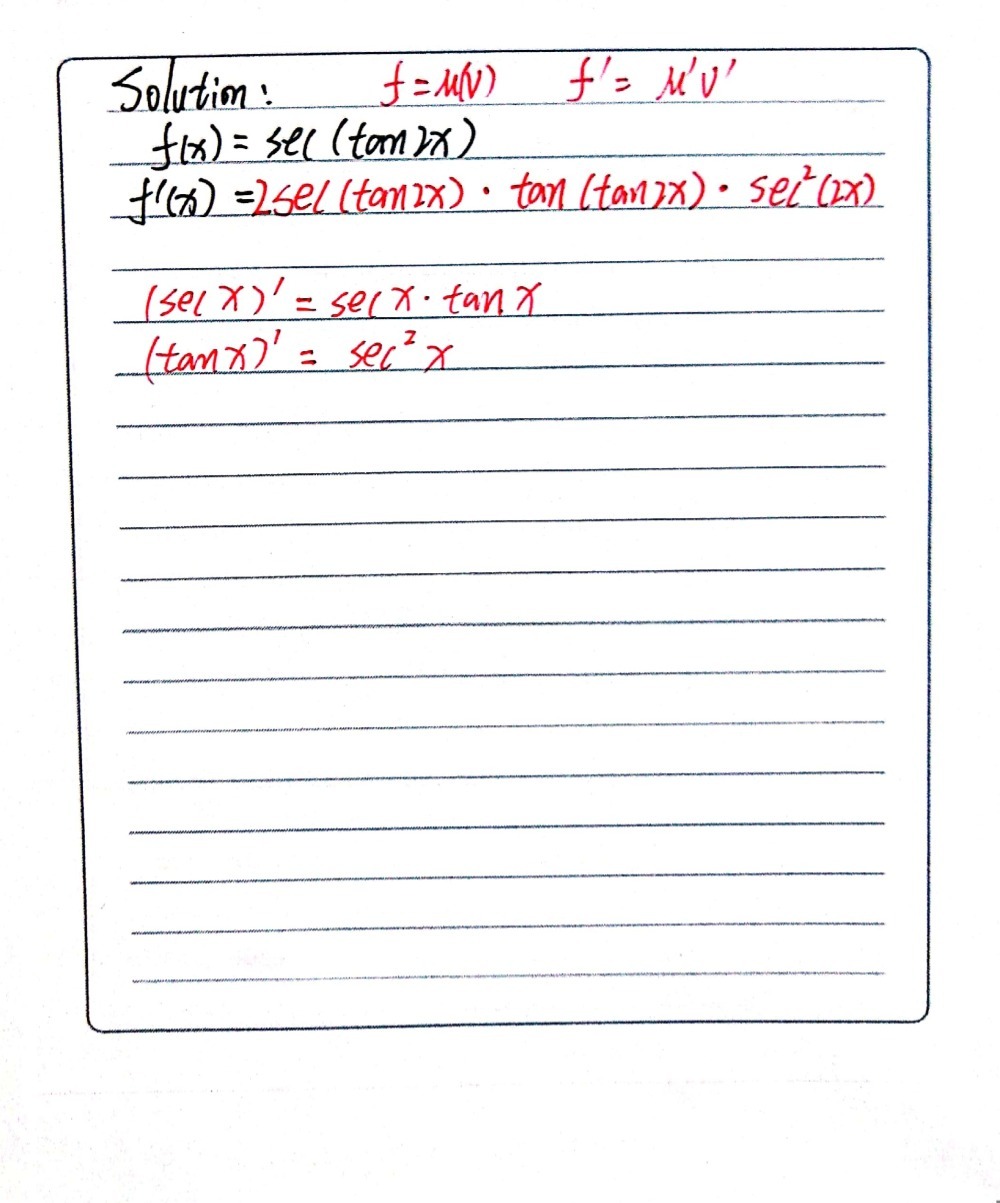 Solution: f = μ(v) f' = μ'v'
f(x) = sec (tan 2x)
f'(x) = 2sec (tan 2x) · tan (tan 2x) · sec² (2x)
(sec x)' = sec x · tan x
(tan x)' = sec² x